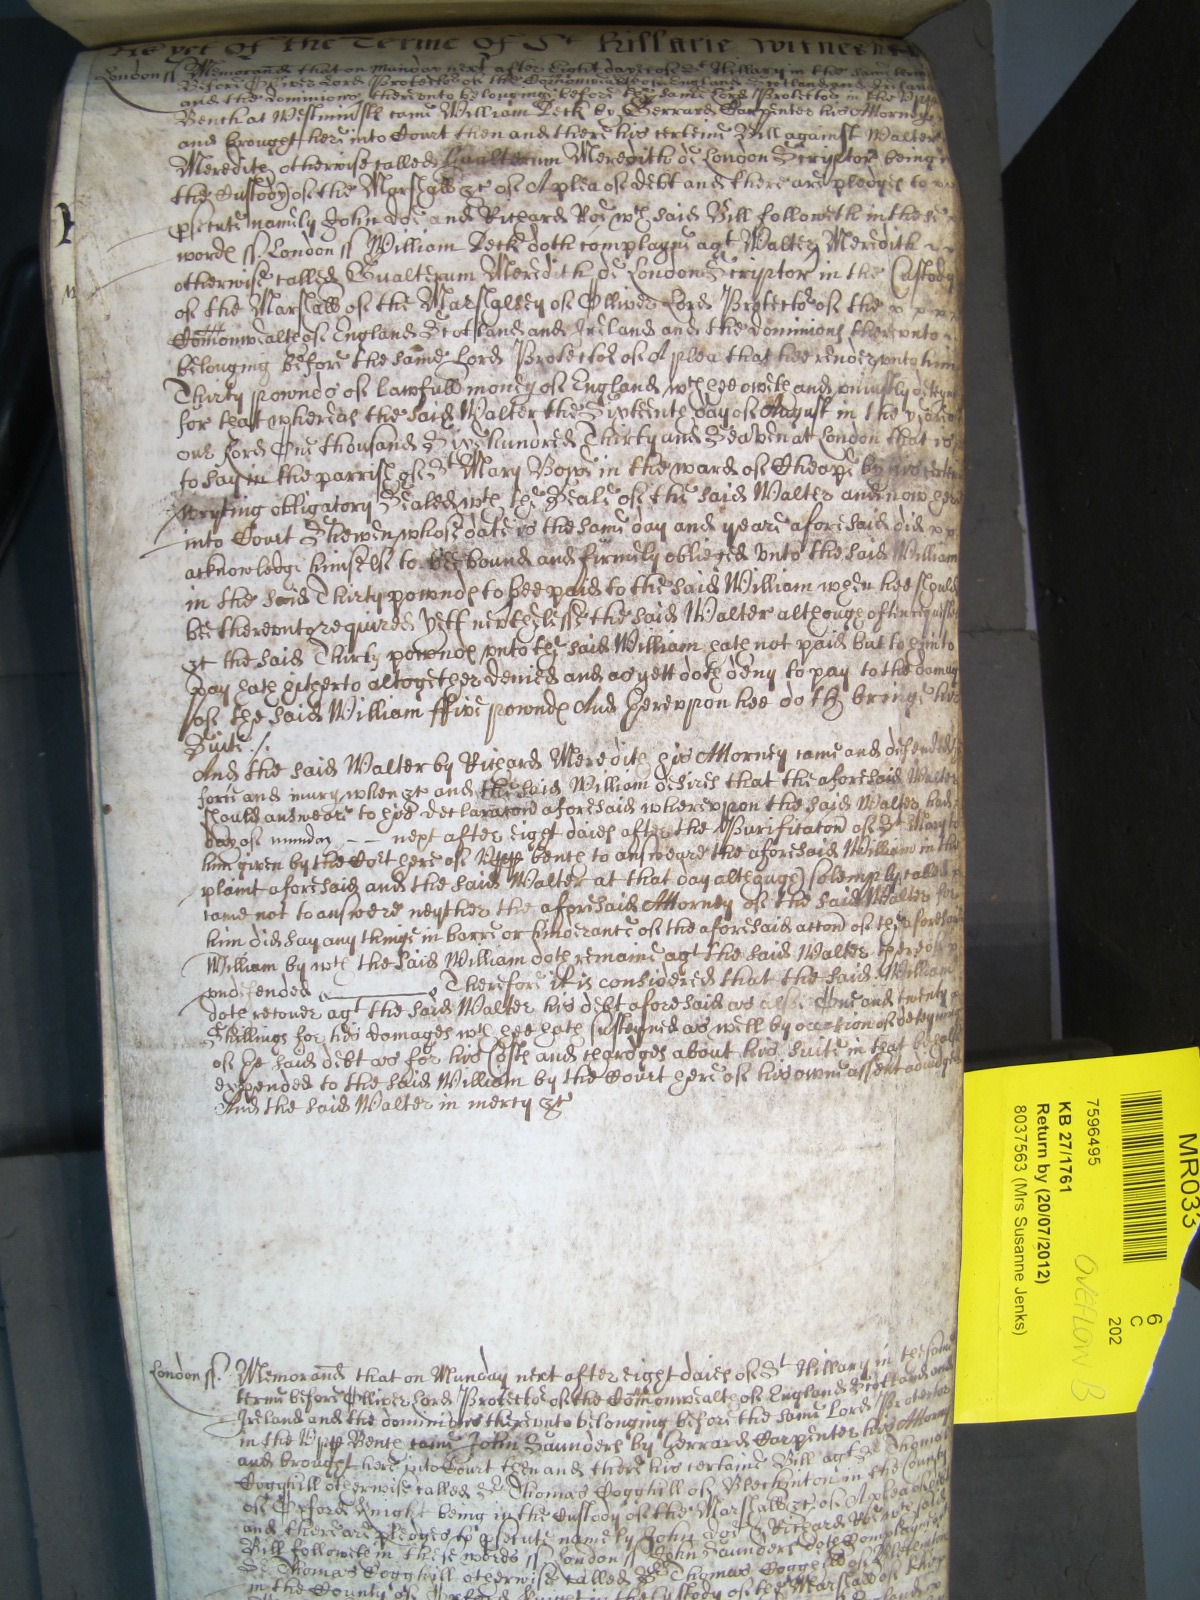 As yet of the Terme of St Hillarie Witnes
London ss Memorand that on Munday next after eight dayes of St Hillary in the same terme
Before Oliver Lord Protector of the Comonwealth of England Scotland and Ireland
and the dominions thereunto belonging before the same Lord Protector in the Upp
Bench at Westminster came William Peck by Gerrard Carpenter his Attorney
and brought here into Court then and there his certeine Bill against Walter
Meredith otherwise called Gualterum Meredith de London Scriptor being in
the Custody of the Marshall &c of A plea of debt and there are pledges to
psecute namely John Doe and Richard Roe wch said Bill followeth in these
words ss London ss William Peck doth complayne agt Walter Meredith
otherwise called Gualterum Meredith de London Scriptor in the Custody
of the Marshall of the Marshalsey of Olliver Lord Protector of the
Comonwealth of England Scotland and Ireland and the dominions thereunto
belonging before the same Lord Protector of A plea that hee render unto him
Thirty pownds of lawfull money of England wch hee oweth and uniustly deteyn
for that whereas the said Walter the Sixteenth day of August in the yeare
our Lord One thousand Six hundred Thirty and Seaven at London that is
to say in the parrish of St Mary Bowe in the ward of Cheape by his certen
wryting obligatory Sealed wth the Seale of the said Walter and now here
into Court Shewen whose date is the same day and yeare aforesaid did
acknowledge himselfe to bee bound and firmely obliged unto the said William
in the said Thirty pownds to bee paid to the said William when hee should
be thereunto required yett neverthelesse the said Walter although often requested
&c the said Thirty pownds unto the said William hath not paid but to him to
pay hath hitherto altogether denied and as yett doth deny to pay to the damage
of the said William ffive pownds And hereupon hee doth bringe his
Suite /.
And the said Walter by Richard Meredith his Attorney came and defended
force and iniury when &c and the said William desireth that the aforesaid Walter
should answeare to his declaracon aforesaid whereupon the said Walter had
day of munday -- next after eight daies after the Purificacon of St Mary to
him given by the Cort here of Upp bench to answeare the aforesaid William in the
plaint aforesaid and the said Walter at that day although solemply called
came not to answere neyther the aforesaid Attorney of the said Walter for
him did say any thinge in barre or himderance of the aforesaid accon of the aforesaid
William by wch the said William doth remaine agt the said Walter thereof
undefended Therefore it is considered that the said William
doth recover agt the said Walter his debt aforesaid as also One and twenty
Shillings for his damages wch hee hath susteyned as well by occation of deteyning
of he said debt as for his Costs and chardges about his suite in that behalfe
expended to the said William by the Court here of his owne assent adiudged
And the said Walter in mercy &c
London ss. Memorand that on Munday next after eight daies of St Hillary in the same
terme before Olliver Lord Protector of the Comonwealth of England Scotland and
Ireland and the dominions thereunto belonging before the same Lord Protector
in the Upp Bench came John Saunders by Gerrard Carpenter his Attorney
and brought here into Court then and there his certaine Bill agt Sr Thomas
Cogghill otherwise called Sr Thomas Cogghill of Blechinton in the County
of Oxford Knight being in the Custody of the Marshall &c of A plea of debt
and there are pledges to psecute namely John Doe & Richard Roe wch said
Bill followeth in these words ss London ss John Saunders doth Complayne
Sr Thomas Cogghill otherwise called Sr Thomas Cogghill of Blechinton
in the County of Oxford Knight in the Custody of the Marshall of the
MR033
6
C
202
7596495
KB 27/1761
Return by (20/07/2012)
8037563 (Mrs Susanne Jenks)
OVERFLOW B